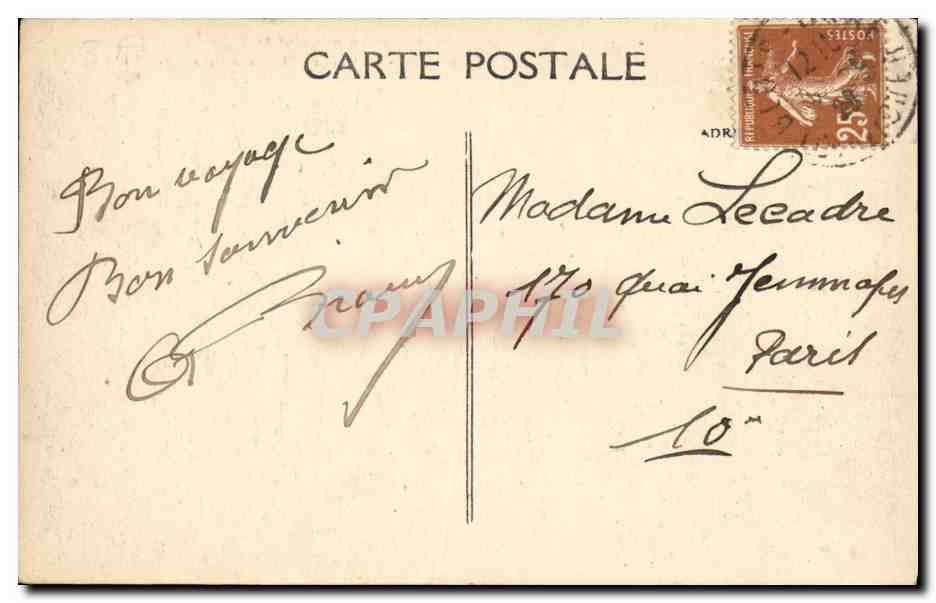 CARTE POSTALE
RÉPUBLIQUE FRANÇAISE
POSTES
25
ADR
Bon voyage
Bon souvenir
Madame Lecadre
170 quai Jemmapes
Paris
10
CPAPHIL